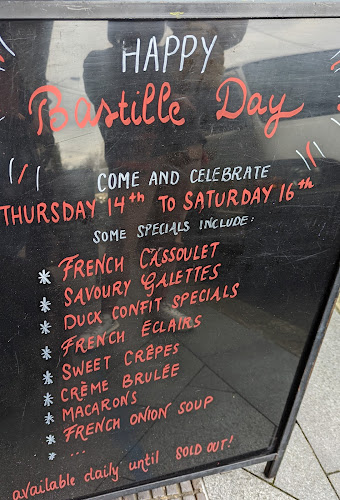 HAPPY
Bastille Day
COME AND CELEBRATE
THURSDAY 14th TO SATURDAY 16th
SOME SPECIALS INCLUDE:
* FRENCH CASSOULET
* SAVOURY GALETTES
* DUCK CONFIT SPECIALS
* FRENCH ÉCLAIRS
* SWEET CRÊPES
* CRÈME BRULÉE
* MACARONS
* FRENCH ONION SOUP
* ...
available daily until SOLD OUT!